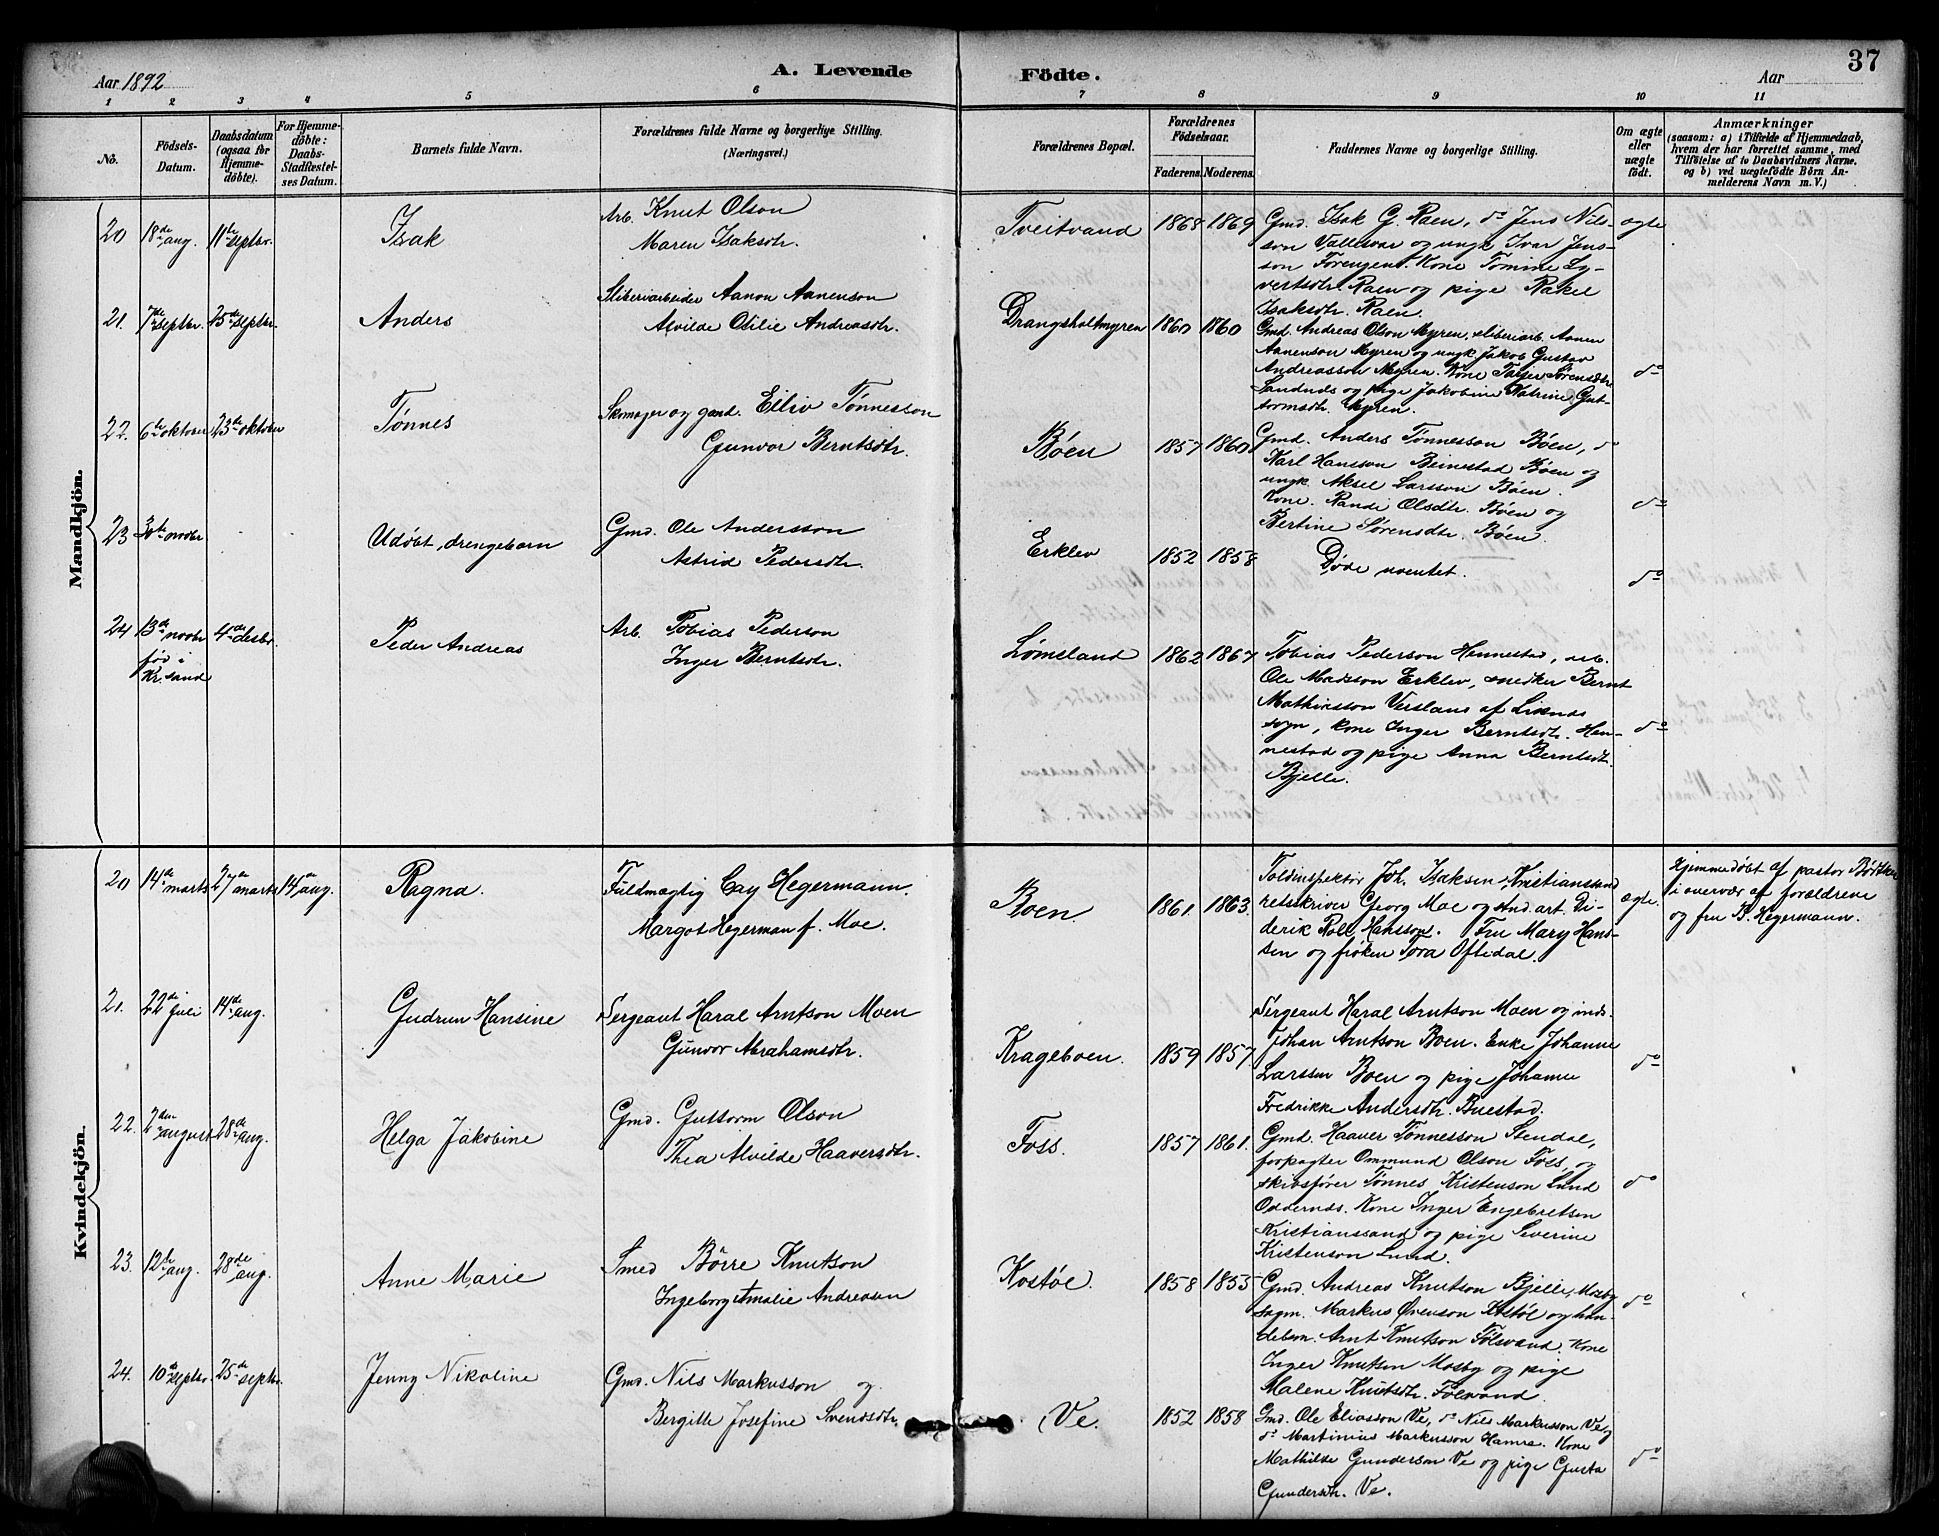 37
Aar 1892
A. Levende
Födte.
Aar
1 2 3 4 5 6 7 8 9 10 11
No.
Födsels-Datum.
Daabsdatum (ogsaa for Hjemme-döbte).
For Hjemme-döbte: Daabs-Stadfæstelses Datum.
Barnets fulde Navn.
Forældrenes fulde Navne og borgerlige Stilling.
(Næringsvei.)
Forældrenes Bopæl.
Forældrenes Födselsaar.
Faderens. Moderens.
Faddernes Navne og borgerlige Stilling.
Om ægte eller uægte födt.
Anmærkninger
(saasom: a) i Tilfælde af Hjemmedaab,
hvem der har forrettet samme, med
Tilföielse af to Daabsvidners Navne.
og b) ved uægtefödte Börn An-
melderens Navn m. V.)
Mandkjön.
20 18de aug. 11te septbr. Isak
Arb. Knut Olson
Maren Isaksdtr.
Tveitvand 1868 1869
Gmd. Isak G. Raen, do Jens Nils-
son Vallesvær og ungk Ivar Jens-
son Förengen. Kone Tomine Sy-
vertsdtr. Raen og pige Rakel
Isaksdtr. Raen.
ægte
21. 7de septbr. 25de septbr. Anders
Sliberiarbeider Aanon Aanenson
Alvilde Otilie Andreasdtr.
Drangsholtmyren 1860 1860
Gmd. Andreas Olson Myren, sliberiarb. Aanen
Aanenson Myren og ungk Jakob Gustav
Andreasson Myren. Kone Tarjer Sørensdtr
Sandnes og pige Jakobine Katrine Gut-
tormsdtr. Myren.
do
22. 6te oktober 23de oktober Tønnes
Skomager og gaard. Elliv Tønnesson
Gunvor Berntsdtr.
Bøen 1857 1860
Gmd. Anders Tønnesson Bøen, do
Karl Hansson Beinestad Bøen og
ungk. Aksel Larsson Bøen.
Kone. Randi Olsdtr. Bøen og
Bertine Sørensdtr. Bøen.
do
23 30te novbr Udøbt, drengebarn
Gmd. Ole Andersson
Astrid Pedersdtr.
Erklev 1852 1858
Døde uventet.
do
24 13de novbr 4de desbr. Peder Andreas
fød i
Kr.sand
Arb. Tobias Pederson
Inger Berntsdtr.
Lømsland 1862 1867
Tobias Pederson Hennestad, arb.
Ole Madsson Erklev, snedker Bernt
Mathiasson Verslans af
sogn, kone Inger Berntsdtr. Hen-
nestad og pige Anna Berntsdtr.
Bjelle.
do
Kvindekjön.
20 14de marts 27de marts 14de aug. Ragna.
Fuldmægtig Cay Hegermann.
Margot Hegerman f. Moe.
Boen. 1861. 1863.
Toldinspektør Joh. Isaksen, Kristianssand
retsskriver Georg Moe og stud. art. Di-
derik Roll Hansson. Fru Mary Hans-
sen og frøken Tora Oftedal.
ægte.
Hjemmedøbt af pastor Børtker
i overvær af forældrene
og fru B. Hegermann.
21. 22de juli 14de aug. Gudrun Hansine
Sergeant Haral Arntson Moen
Gunvor Abrahamsdtr.
Krageboen. 1859 1857.
Sergeant Haral Arntson Moen og inds.
Johan Arntson Boen. Enke Johanne
Larssen Boen og pige Johanne
Fredrikke Andersdtr. Buestad.
do
22. 2den august 28de aug. Helga Jakobine
Gmd. Guttorm Olson
Thea Alvilde Haaversdtr.
Foss. 1857 1861.
Gmd. Haaver Tønnesson Stendal,
forpagter Ommund Olson Foss, og
skibsfører Tønnes Kristenson Lund
Oddernes. Kone Inger Engebretsen
Kristianssand og pige Severine
Kristenson Lund.
do
23. 12te aug. 28de aug. Anne Marie
Smed Børre Knutson
Ingeborg Amalie Andreasen
Kostøl. 1858 1853
Gmd. Andreas Knutson Bjelle, Mosby
sogn. Markus Ovenson Kostøl og han-
delsm. Arnt Knutson Følevand. Kone
Inger Knutsen Mosby og pige
Malene Knutsdtr. Følevand.
do
24. 10de septbr. 25de septbr. Jenny Nikoline
Gmd. Nils Markusson og
Bergitte Josefine Svendsdtr.
Ve. 1852 1858
Gmd. Ole Eliasson Ve, do Nils Markusson Ve og
do Martinius Markusson Hamre. Kone
Mathilde Gunderson Ve og pige Gusta
Gundersdtr. Ve.
do